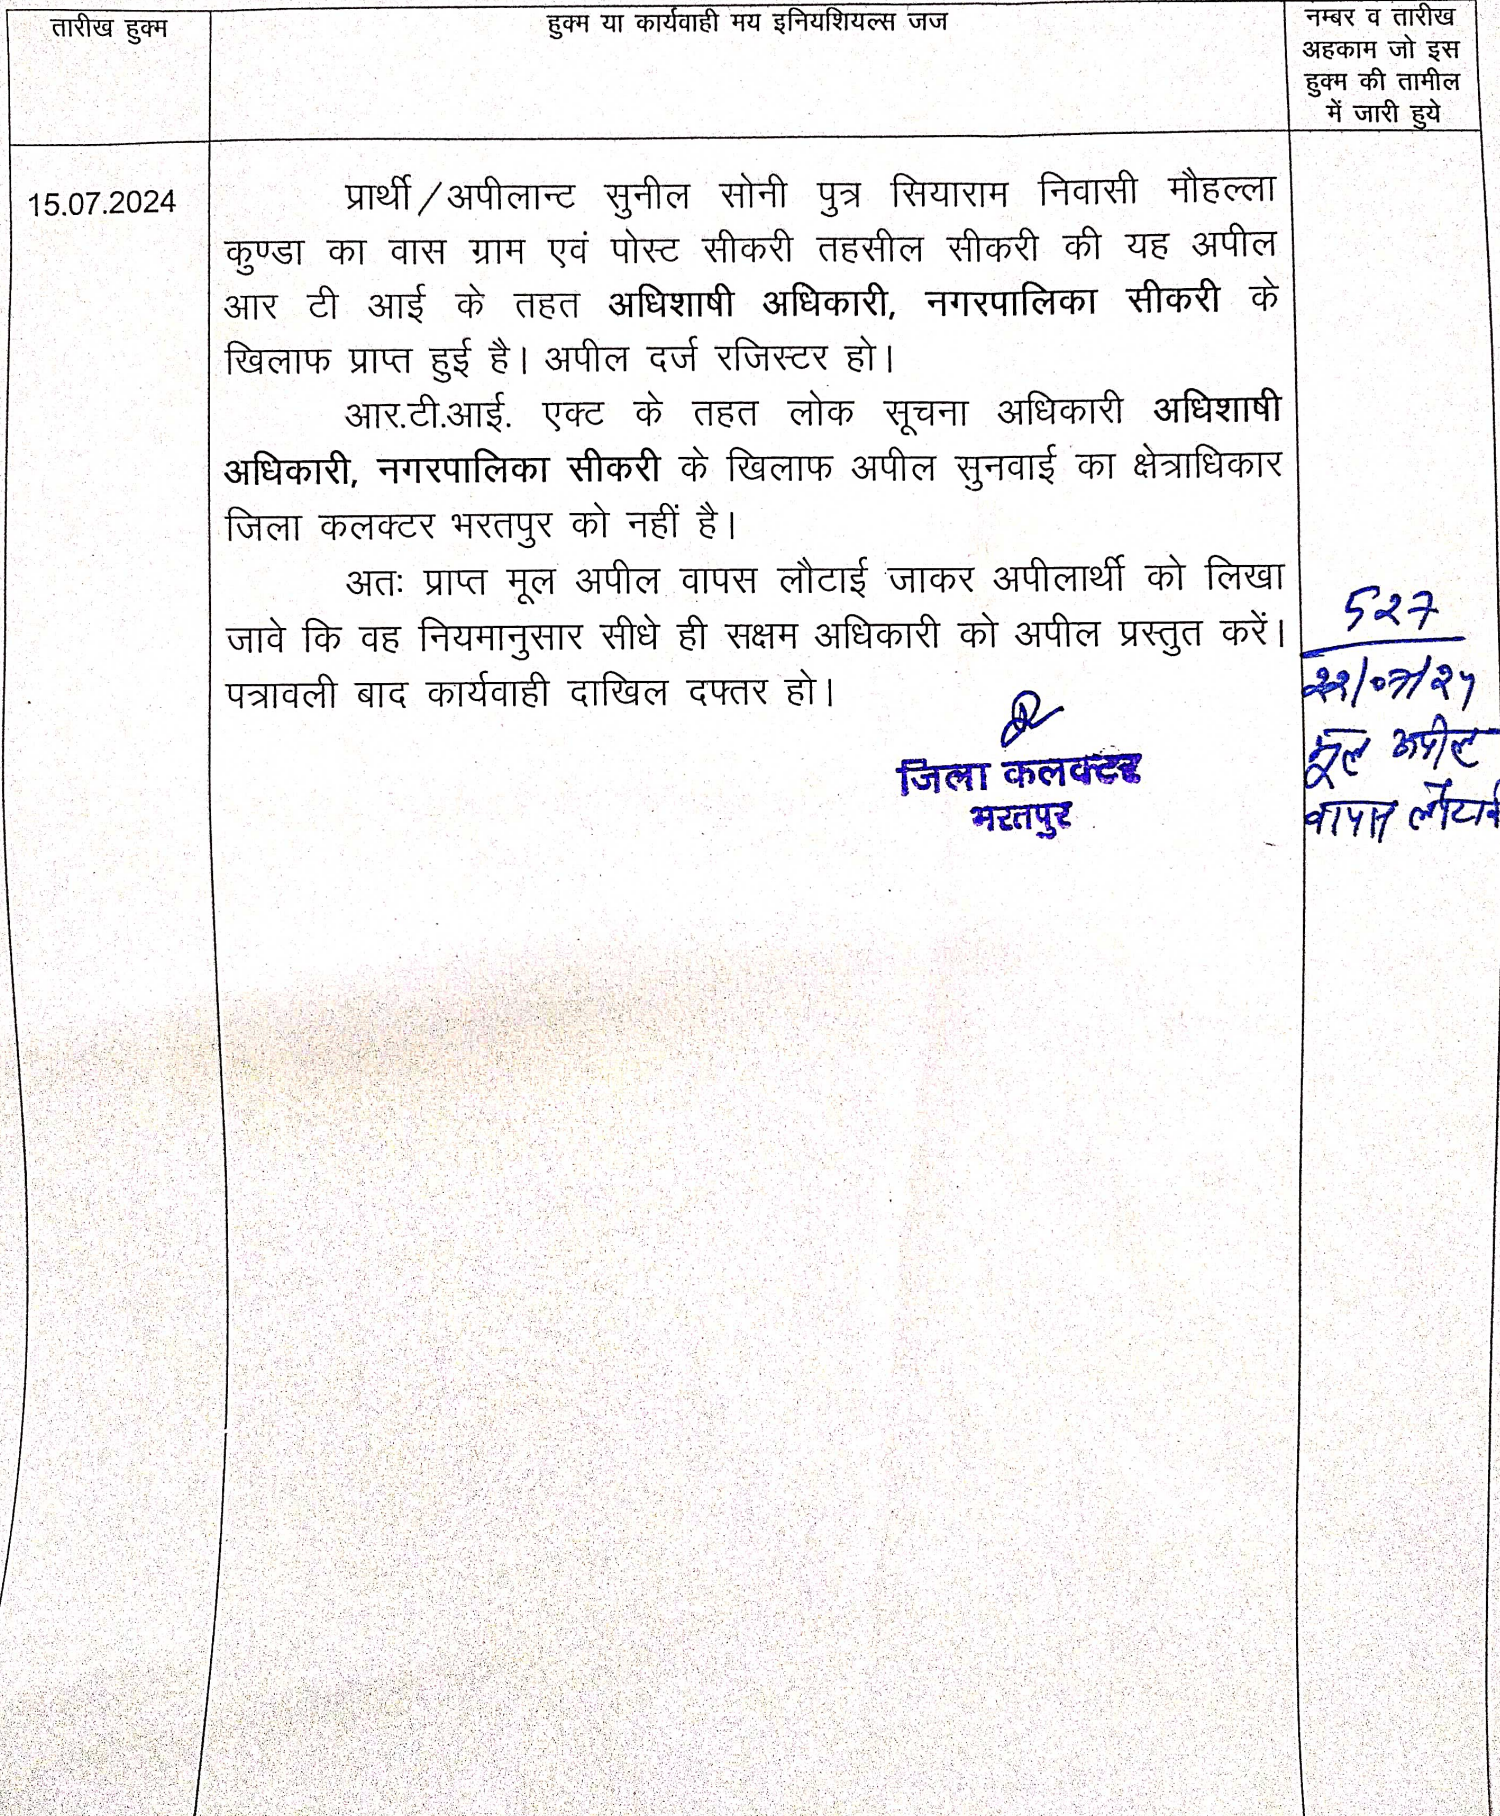 तारीख हुक्म
हुक्म या कार्यवाही मय इनियशियल्स जज
नम्बर व तारीख
अहकाम जो इस
हुक्म की तामील
में जारी हुये
15.07.2024
प्रार्थी/अपीलान्ट सुनील सोनी पुत्र सियाराम निवासी मौहल्ला
कुण्डा का वास ग्राम एवं पोस्ट सीकरी तहसील सीकरी की यह अपील
आर टी आई के तहत अधिशाषी अधिकारी, नगरपालिका सीकरी के
खिलाफ प्राप्त हुई है। अपील दर्ज रजिस्टर हो।
आर.टी.आई. एक्ट के तहत लोक सूचना अधिकारी अधिशाषी
अधिकारी, नगरपालिका सीकरी के खिलाफ अपील सुनवाई का क्षेत्राधिकार
जिला कलक्टर भरतपुर को नहीं है।
अतः प्राप्त मूल अपील वापस लौटाई जाकर अपीलार्थी को लिखा
जावे कि वह नियमानुसार सीधे ही सक्षम अधिकारी को अपील प्रस्तुत करें।
पत्रावली बाद कार्यवाही दाखिल दफ्तर हो।
जिला कलक्टर
भरतपुर
5२7
मूल अपील
वापस लौटाई